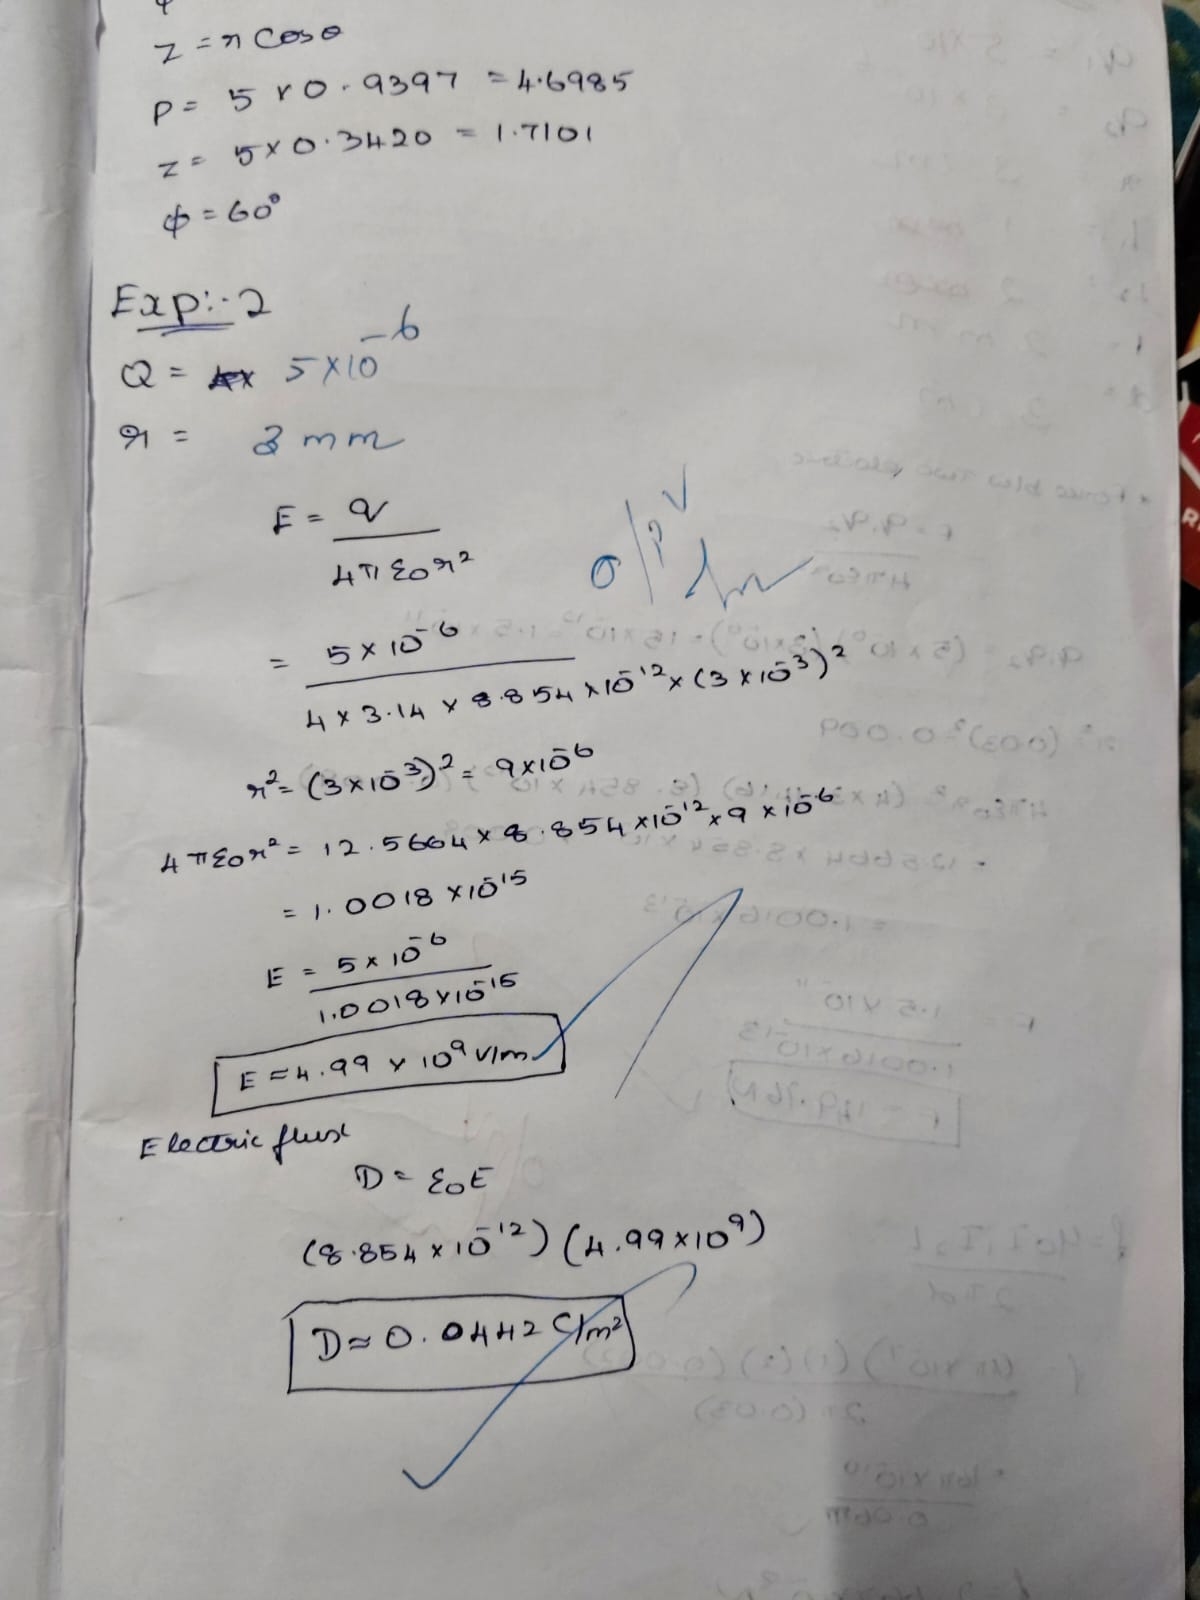 z = r cos θ
ρ = 5 × 0.9397 = 4.6985
z = 5 × 0.3420 = 1.7101
ϕ = 60°
Exp:-2
Q = 5×10⁻⁶
r = 3 mm
E = q / 4π ε₀ r²
o/p ✓
= 5 × 10⁻⁶ / 4 × 3.14 × 8.854 × 10⁻¹² × (3 × 10⁻³)²
r² = (3×10⁻³)² = 9×10⁻⁶
4πε₀r² = 12.5664 × 8.854 × 10⁻¹² × 9 × 10⁻⁶
= 1.0018 × 10⁻¹⁵
E = 5 × 10⁻⁶ / 1.0018 × 10⁻¹⁵
E = 4.99 × 10⁹ V/m
Electric flux
D = ε₀E
(8.854 × 10⁻¹²) (4.99×10⁹)
D ≈ 0.0442 C/m²